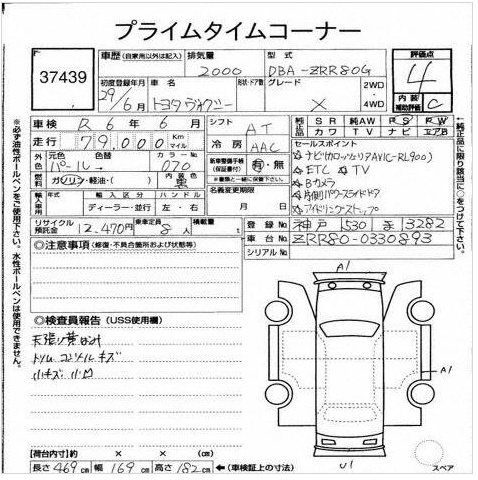 プライムタイムコーナー
37439
車歴 (自家用以外は記入) 排気量 型式
2000 DBA-ZRR80G
評価点
4
内装補助評価 C
初度登録年月 車名 形状・ドア数 グレード
29年/6月 トヨタヴォクシー X 2WD・4WD
車検 R 6年 6月 シフト AT
走行 79,000 Km マイル 冷房 AAC
外色 元色 パール 色替 カラーNo 070 内色
燃料 ガソリン・軽油・( )
新車整備手帳(保証書付) 有・無
※書類として後送厳禁
輸入車用 年式 輸入区分 ハンドル
ディーラー・並行 左・右
名義変更期限
月 日
リサイクル預託金 12,470円 乗車定員 8人 積載量 t
純正品 SR 純AW PS PW
カワ TV ナビ エアB
セールスポイント
☆ナビ(カロッツェリアAVIC-RL900)
☆ETC ☆TV
☆Bカメラ
☆片側パワースライドドア
☆アイドリングストップ
登録No 神戸 530 ま 3282
車台No ZRR80-0330893
シリアルNo
◎注意事項 (修復・不具合箇所および状態等)
◎検査員報告 (USS使用欄)
小キズ 小凹
【荷台内寸】 × × (cm)
長さ 469cm 幅 169cm 高さ 182cm ←(車検証上の寸法)
A1
A1
U1
スペア
※必ず油性ボールペンをご使用下さい。水性ボールペンは使用できません。
←純正品に限り該当に○をつけて下さい。